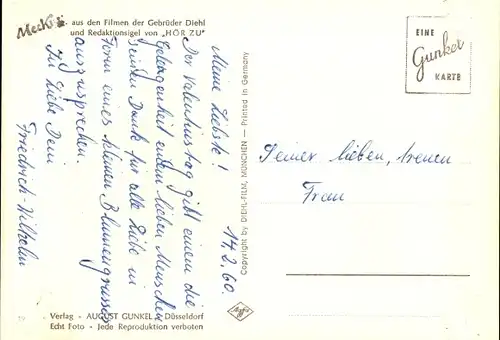 Mecki - aus den Filmen der Gebrüder Diehl
und Redaktionsigel von „HÖR ZU"
EINE
Gunkel
KARTE
14.2.60.
Meine Liebste!
Der Valentinstag gibt einem die
Gelegenheit einem lieben Menschen
seinen Dank für alle Liebe in
Form eines kleinen Blumengrusses
auszusprechen.
In Liebe Dein
Friedrich-Wilhelm
Copyright by DIEHL-FILM, MÜNCHEN — Printed in Germany
Seiner lieben, treuen
Frau
Agfa
Verlag - AUGUST GUNKEL - Düsseldorf
Echt Foto - Jede Reproduktion verboten